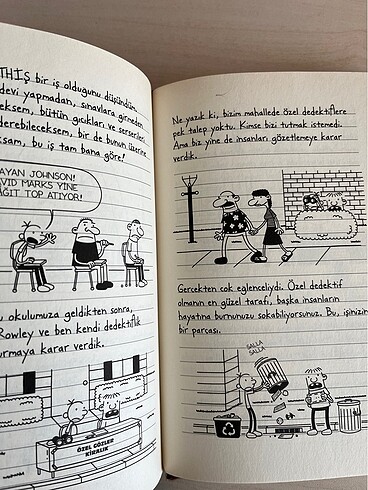 THİŞ bir iş olduğunu düşündüm.
devi yapmadan, sınavlara girmeden
eksem, bütün gıcıkları ve serserileri
derebileceksem, bir de bunun üzerine
ksam, bu iş tam bana göre!
AYAN JOHNSON!
VID MARKS YİNE
ĞIT TOP ATIYOR!
u okulumuza geldikten sonra,
Rowley ve ben kendi dedektiflik
urmaya karar verdik.
ÖZEL GÖZLER
KİRALIK
Ne yazık ki, bizim mahallede özel dedektiflere
pek talep yoktu. Kimse bizi tutmak istemedi.
Ama biz yine de insanları gözetlemeye karar
verdik.
Gerçekten çok eğlenceliydi. Özel dedektif
olmanın en güzel tarafı, başka insanların
hayatına burnunuzu sokabiliyorsunuz. Bu, işinizin
bir parçası.
SALLA
SALLA